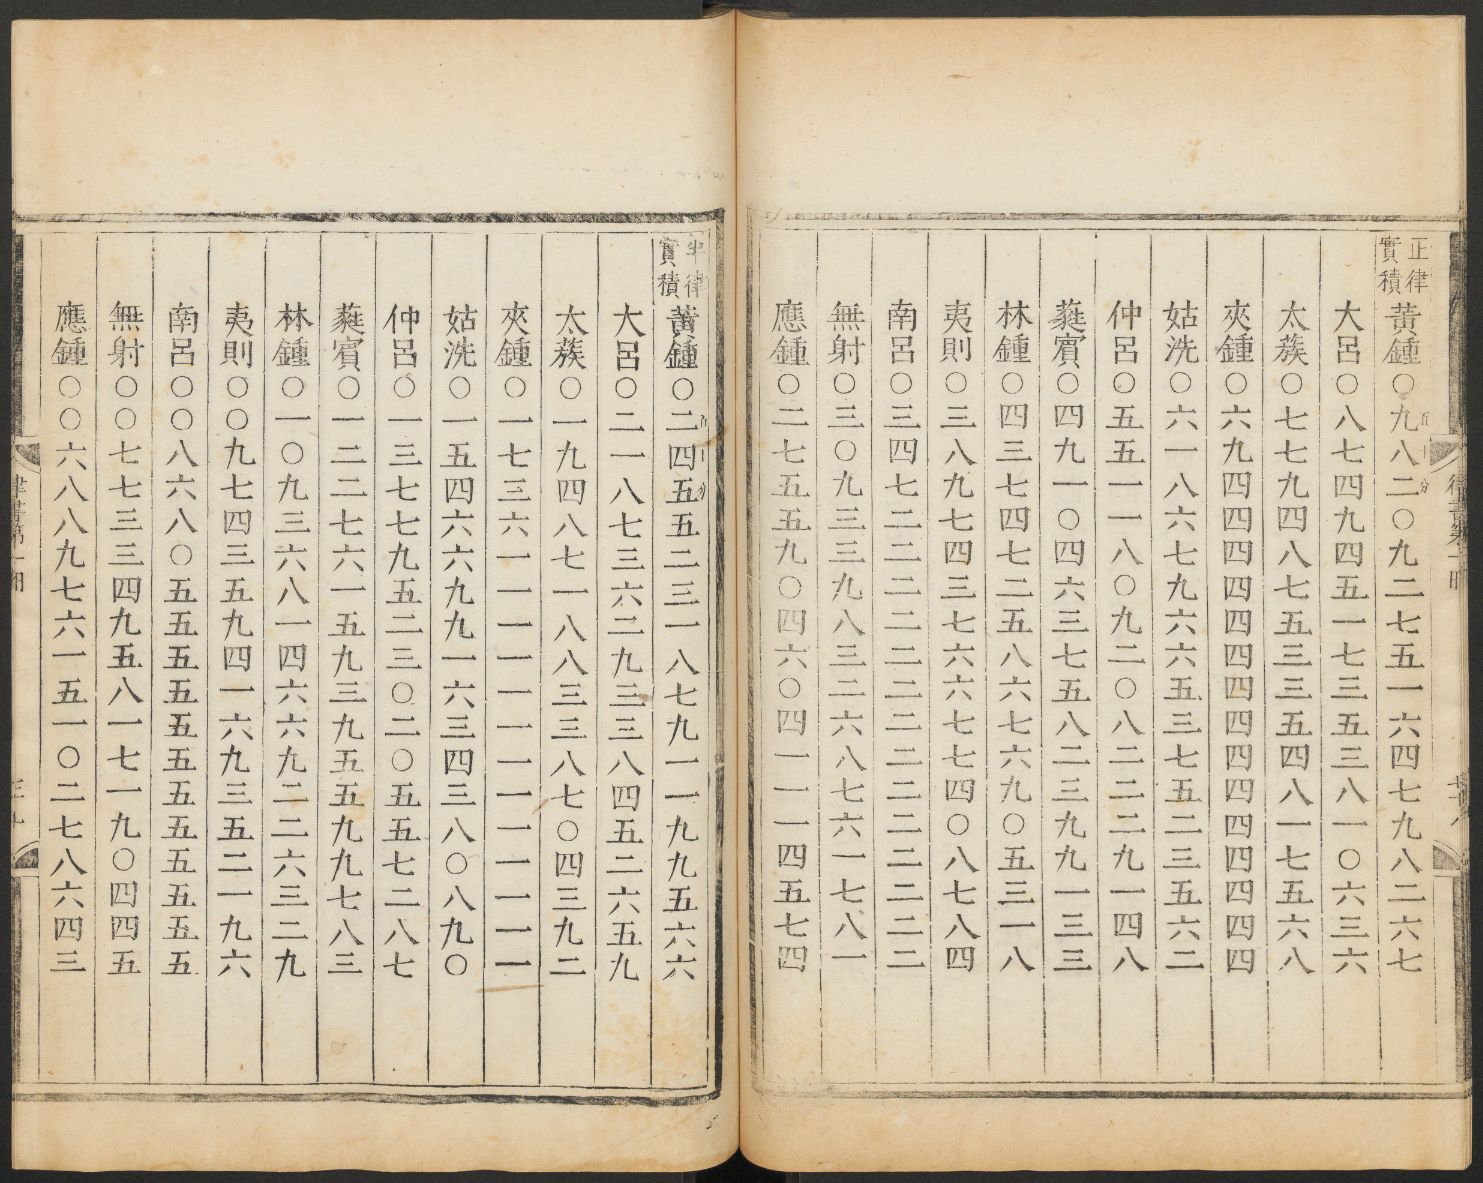 正律
實積
黃鍾○九八二○九二七五一六四七九八二六七
大呂○八七四九四五一七三五三八一○六三六
太蔟○七七九四八七五三三五四八一七五六八
夾鍾○六九四四四四四四四四四四四四四四四
姑洗○六一八六七九六六五三七五二三五六二
仲呂○五五一一八○九二○八二二二九一四八
蕤賓○四九一○四六三七五八二三九九一三三
林鍾○四三七四七二五八六七六九○五三一八
夷則○三八九七四三七六六七七四○八七八四
南呂○三四七二二二二二二二二二二二二二二
無射○三○九三三九八三二六八七六一七八一
應鍾○二七五五九○四六○四一一一四五七四
半律
實積
黃鍾○二四五五二三一八七九一一九九五六六
大呂○二一八七三六二九三三八四五二六五九
太蔟○一九四八七一八八三三八七○四三九二
夾鍾○一七三六一一一一一一一一一一一一一
姑洗○一五四六六九九一六三四三八○八九○
仲呂○一三七七九五二三○二○五五七二八七
蕤賓○一二二七六一五九三九五五九九七八三
林鍾○一○九三六八一四六六九二二六三二九
夷則○○九七四三五九四一六九三五二一九六
南呂○○八六八○五五五五五五五五五五五五
無射○○七七三三四九五八一七一九○四四五
應鍾○○六八八九七六一五一○二七八六四三